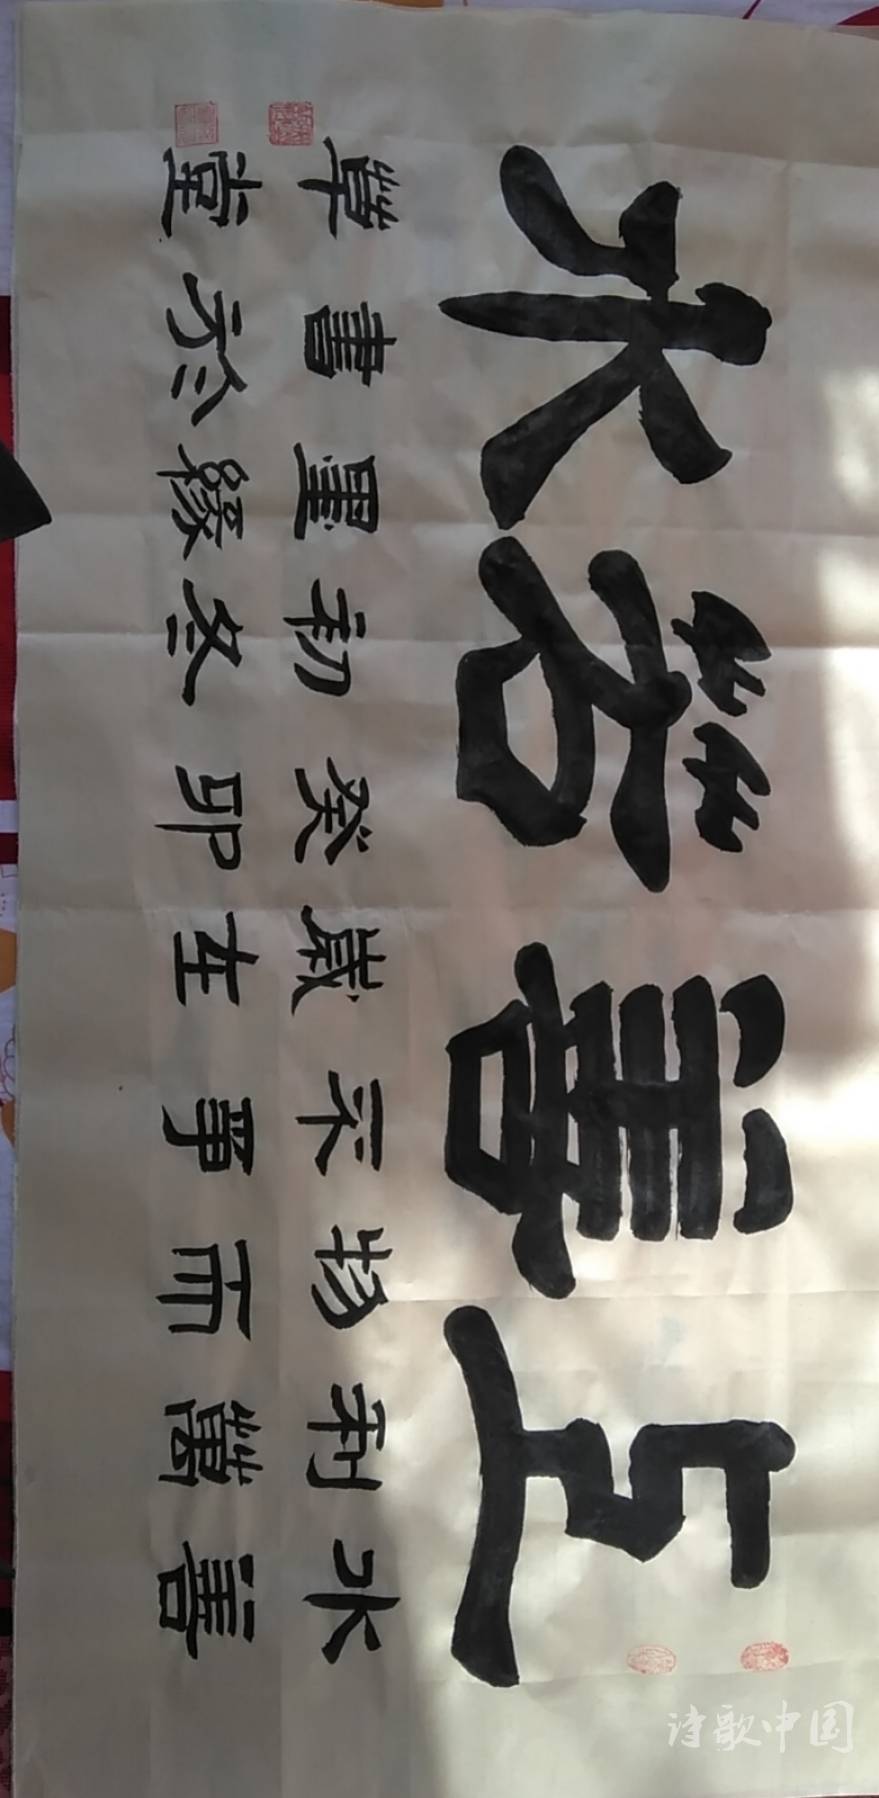 上善若水
水善
利萬
物而
不爭
歲在
癸卯
初冬
墨緣
書於
草堂
诗歌中国